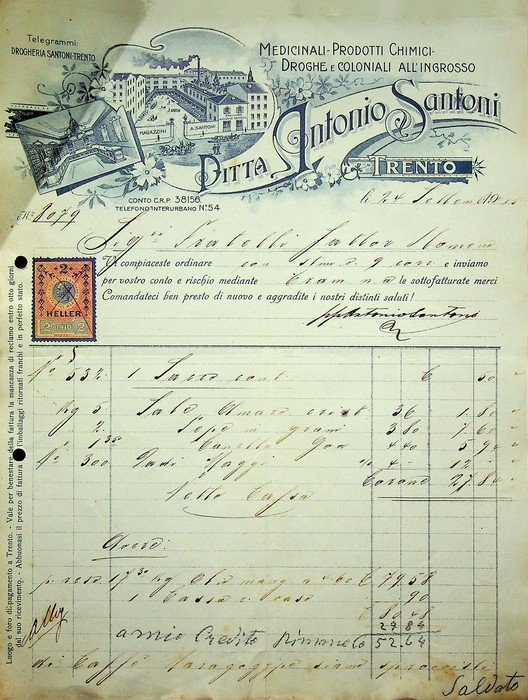 Telegrammi:
DROGHERIA SANTONI-TRENTO
MEDICINALI-PRODOTTI CHIMICI-
DROGHE E COLONIALI ALL'INGROSSO
MAGAZZINI
A. SANTONI
DITTA Antonio Santoni
TRENTO
CONTO C.R.P. 38156.
TELEFONO INTERURBANO No 54
No 8079
li 24
Sigri Fratelli
Vi compiaceste ordinare con stim. 9 corr. e inviamo
per vostro conto e rischio mediante le sottofatturate merci
Comandateci ben presto di nuovo e aggradite i nostri distinti saluti!
Antonio Santoni
2
HELLER
2 1910 2
No 532 1 Sacco cont 50
Kg 5 Sale Amaro 36 1.80
2. Pepe in grani 3.80 7.60
Canella Goa 4.40 5.94
No 300 Dadi Maggi % 4 12
Corone 27.84
Nella Cassa
Avere:
preso 17 kg 79.58
1 Cassa 90
80.48
27.84
a mio Credito Rimanelo 52.64
di Caffè siamo
Saldato
Luogo e foro di pagamento a Trento. - Vale per benestare della fattura la mancanza di reclamo entro otto giorni
dal suo ricevimento. - Abbuonasi il prezzo di fattura l'imballaggi ritornati franchi e in perfetto stato.